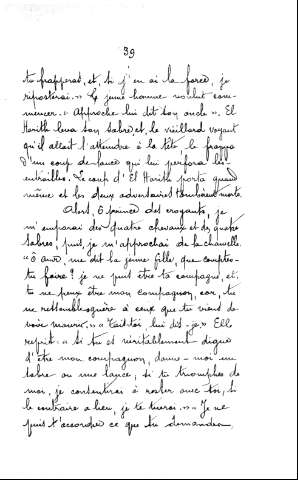 39
tu frapperas, et, si j'en ai la force, je
riposterai. » Le jeune homme voulut com-
mencer. « Approche lui dit son oncle ». El
Harith leva son sabre et, le vieillard voyant
qu'il allait l'atteindre à la tête le frappa
d'un coup de lance qui lui perfora les
entrailles. Le coup d'El Harith porta quand
même et les deux adversaires tombèrent morts.
Alors, ô prince des croyants, je
m'emparai des quatre chevaux et des quatre
sabres, puis, je m'approchai de la chamelle.
"Ô ami, me dit la jeune fille, que comptes-
tu faire? je ne puis être ta compagne, et,
tu ne peux être mon compagnon, car, tu
ne ressembles guère à ceux que tu viens de
voir mourir. » « Tais-toi lui dis-je » Elle
reprit: « si tu es véritablement digne
d'être mon compagnon, donne-moi un
sabre ou une lance, si tu triomphes de
moi, je consentirai à rester avec toi, si
le contraire a lieu, je te tuerai. » « Je ne
puis t'accorder ce que tu demandes